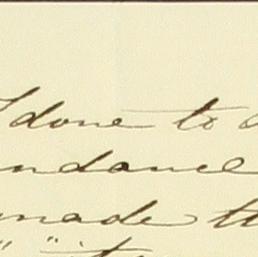 done to
ndance
made th